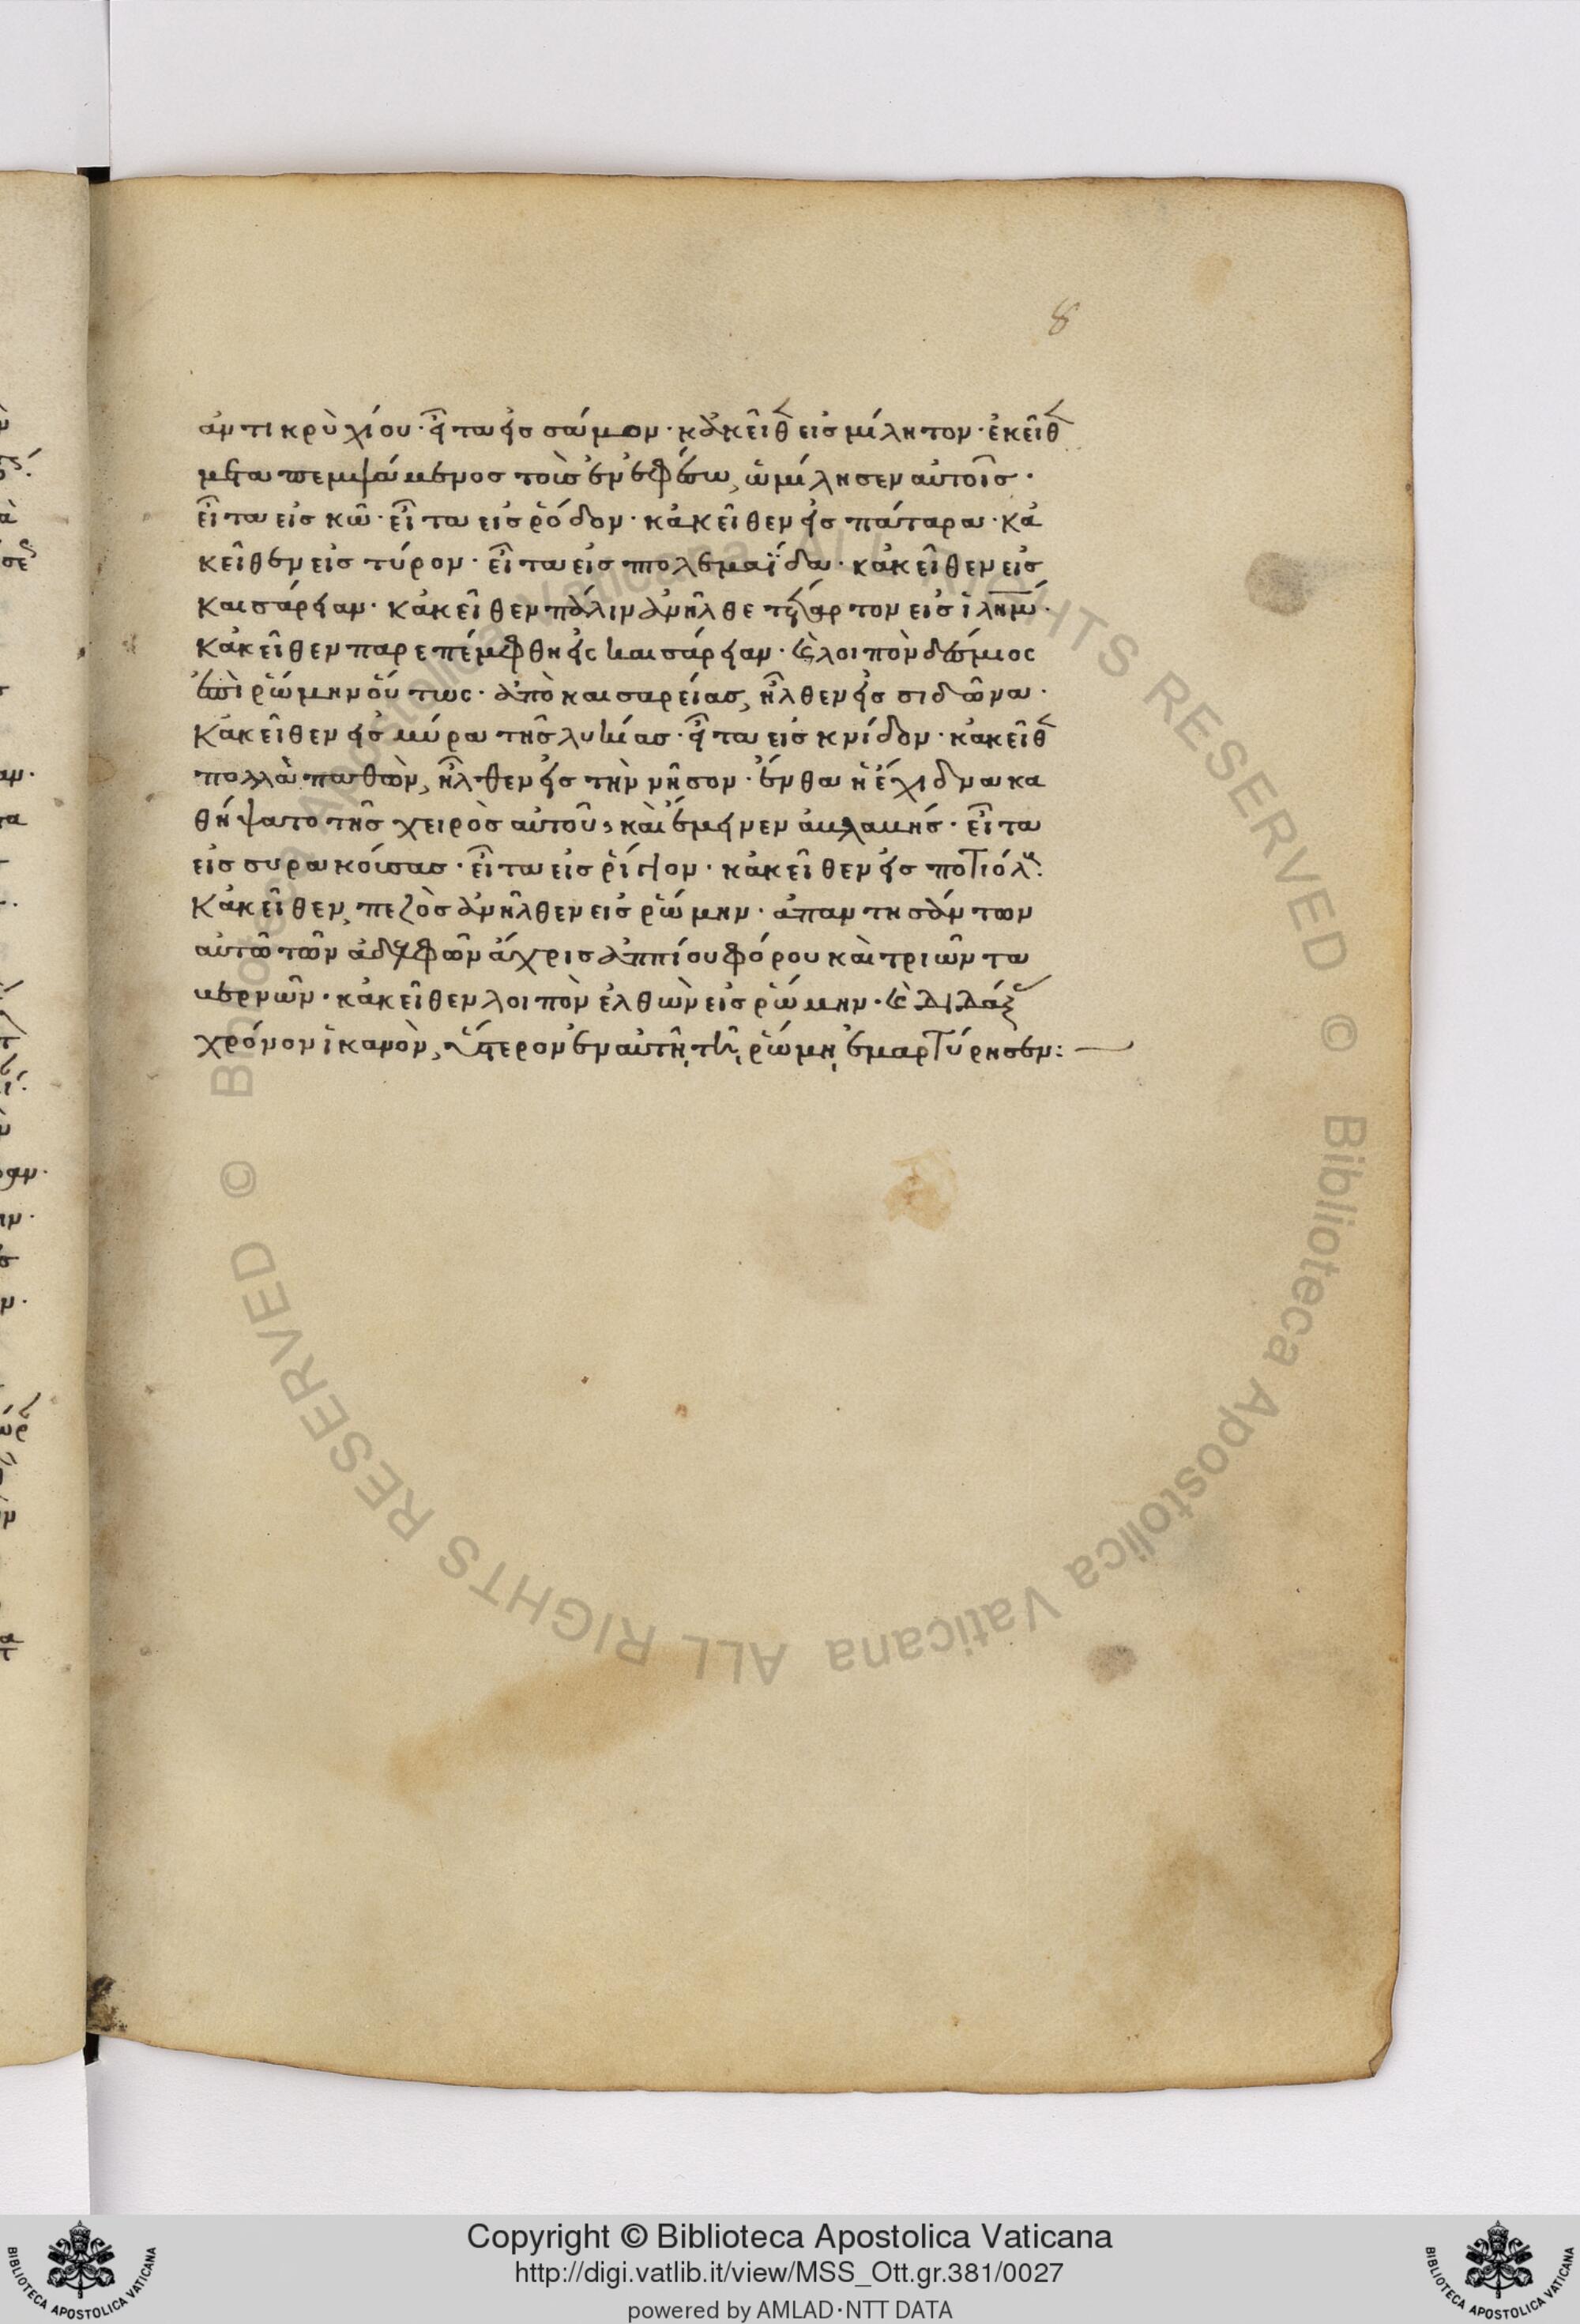 8
ἀντικρὺ χίου· εἶτα εἰς σάμον· κἀκεῖθ εἰς μίλητον· ἐκεῖθ
μεταπεμψάμενος τοὺς ἐν ἐφέσω, ὡμίλησεν αὐτοῖς·
εἶτα εἰς κῶ· εἶτα εἰς ῥόδον· κἀκεῖθεν εἰς πάταρα· κἀ
κεῖθεν εἰς τύρον· εἶτα εἰς πολεμαΐδα· κἀκεῖθεν εἰς
καισάρειαν· κἀκεῖθεν πάλιν ἀνῆλθε τέταρτον εἰς ἱλημ·
κἀκεῖθεν παρεπέμφθη εἰς καισάρειαν· καὶ λοιπὸν δέσμιος
ἐπὶ ῥώμην οὕτως· ἀπὸ καισαρείας, ἦλθεν εἰς σιδῶνα·
κἀκεῖθεν εἰς μύρα τῆς λυκίας· εἶτα εἰς κνίδον· κἀκεῖθ
πολλὰ παθὼν, ἦλθεν εἰς τὴν νῆσον· ἔνθα ἡ ἔχιδνα κα
θήψατο τῆς χειρὸς αὐτοῦ, καὶ ἔμεινεν ἀβλαβής· εἶτα
εἰς συρακούσας· εἶτα εἰς ῥίγιον· κἀκεῖθεν εἰς ποτιόλ·
κἀκεῖθεν, πεζὸς ἀνῆλθεν εἰς ῥώμην· ἀπαντησάντων
αὐτῶ τῶν ἀδελφῶν ἄχρις ἀππίου φόρου καὶ τριῶν τα
βερνῶν· κἀκεῖθεν λοιπὸν ἐλθὼν εἰς ῥώμην· καὶ διδάξ
χρόνον ἱκανὸν, ὕστερον ἐν αὐτῆ, τῆ, ῥώμη, ἐμαρτύρησεν:
Copyright © Biblioteca Apostolica Vaticana
http://digi.vatlib.it/view/MSS_Ott.gr.381/0027
powered by AMLAD·NTT DATA
BIBLIOTECA APOSTOLICA VATICANA
BIBLIOTECA APOSTOLICA VATICANA
© Biblioteca Apostolica Vaticana ALL RIGHTS RESERVED © Biblioteca Apostolica Vaticana ALL RIGHTS RESERVED